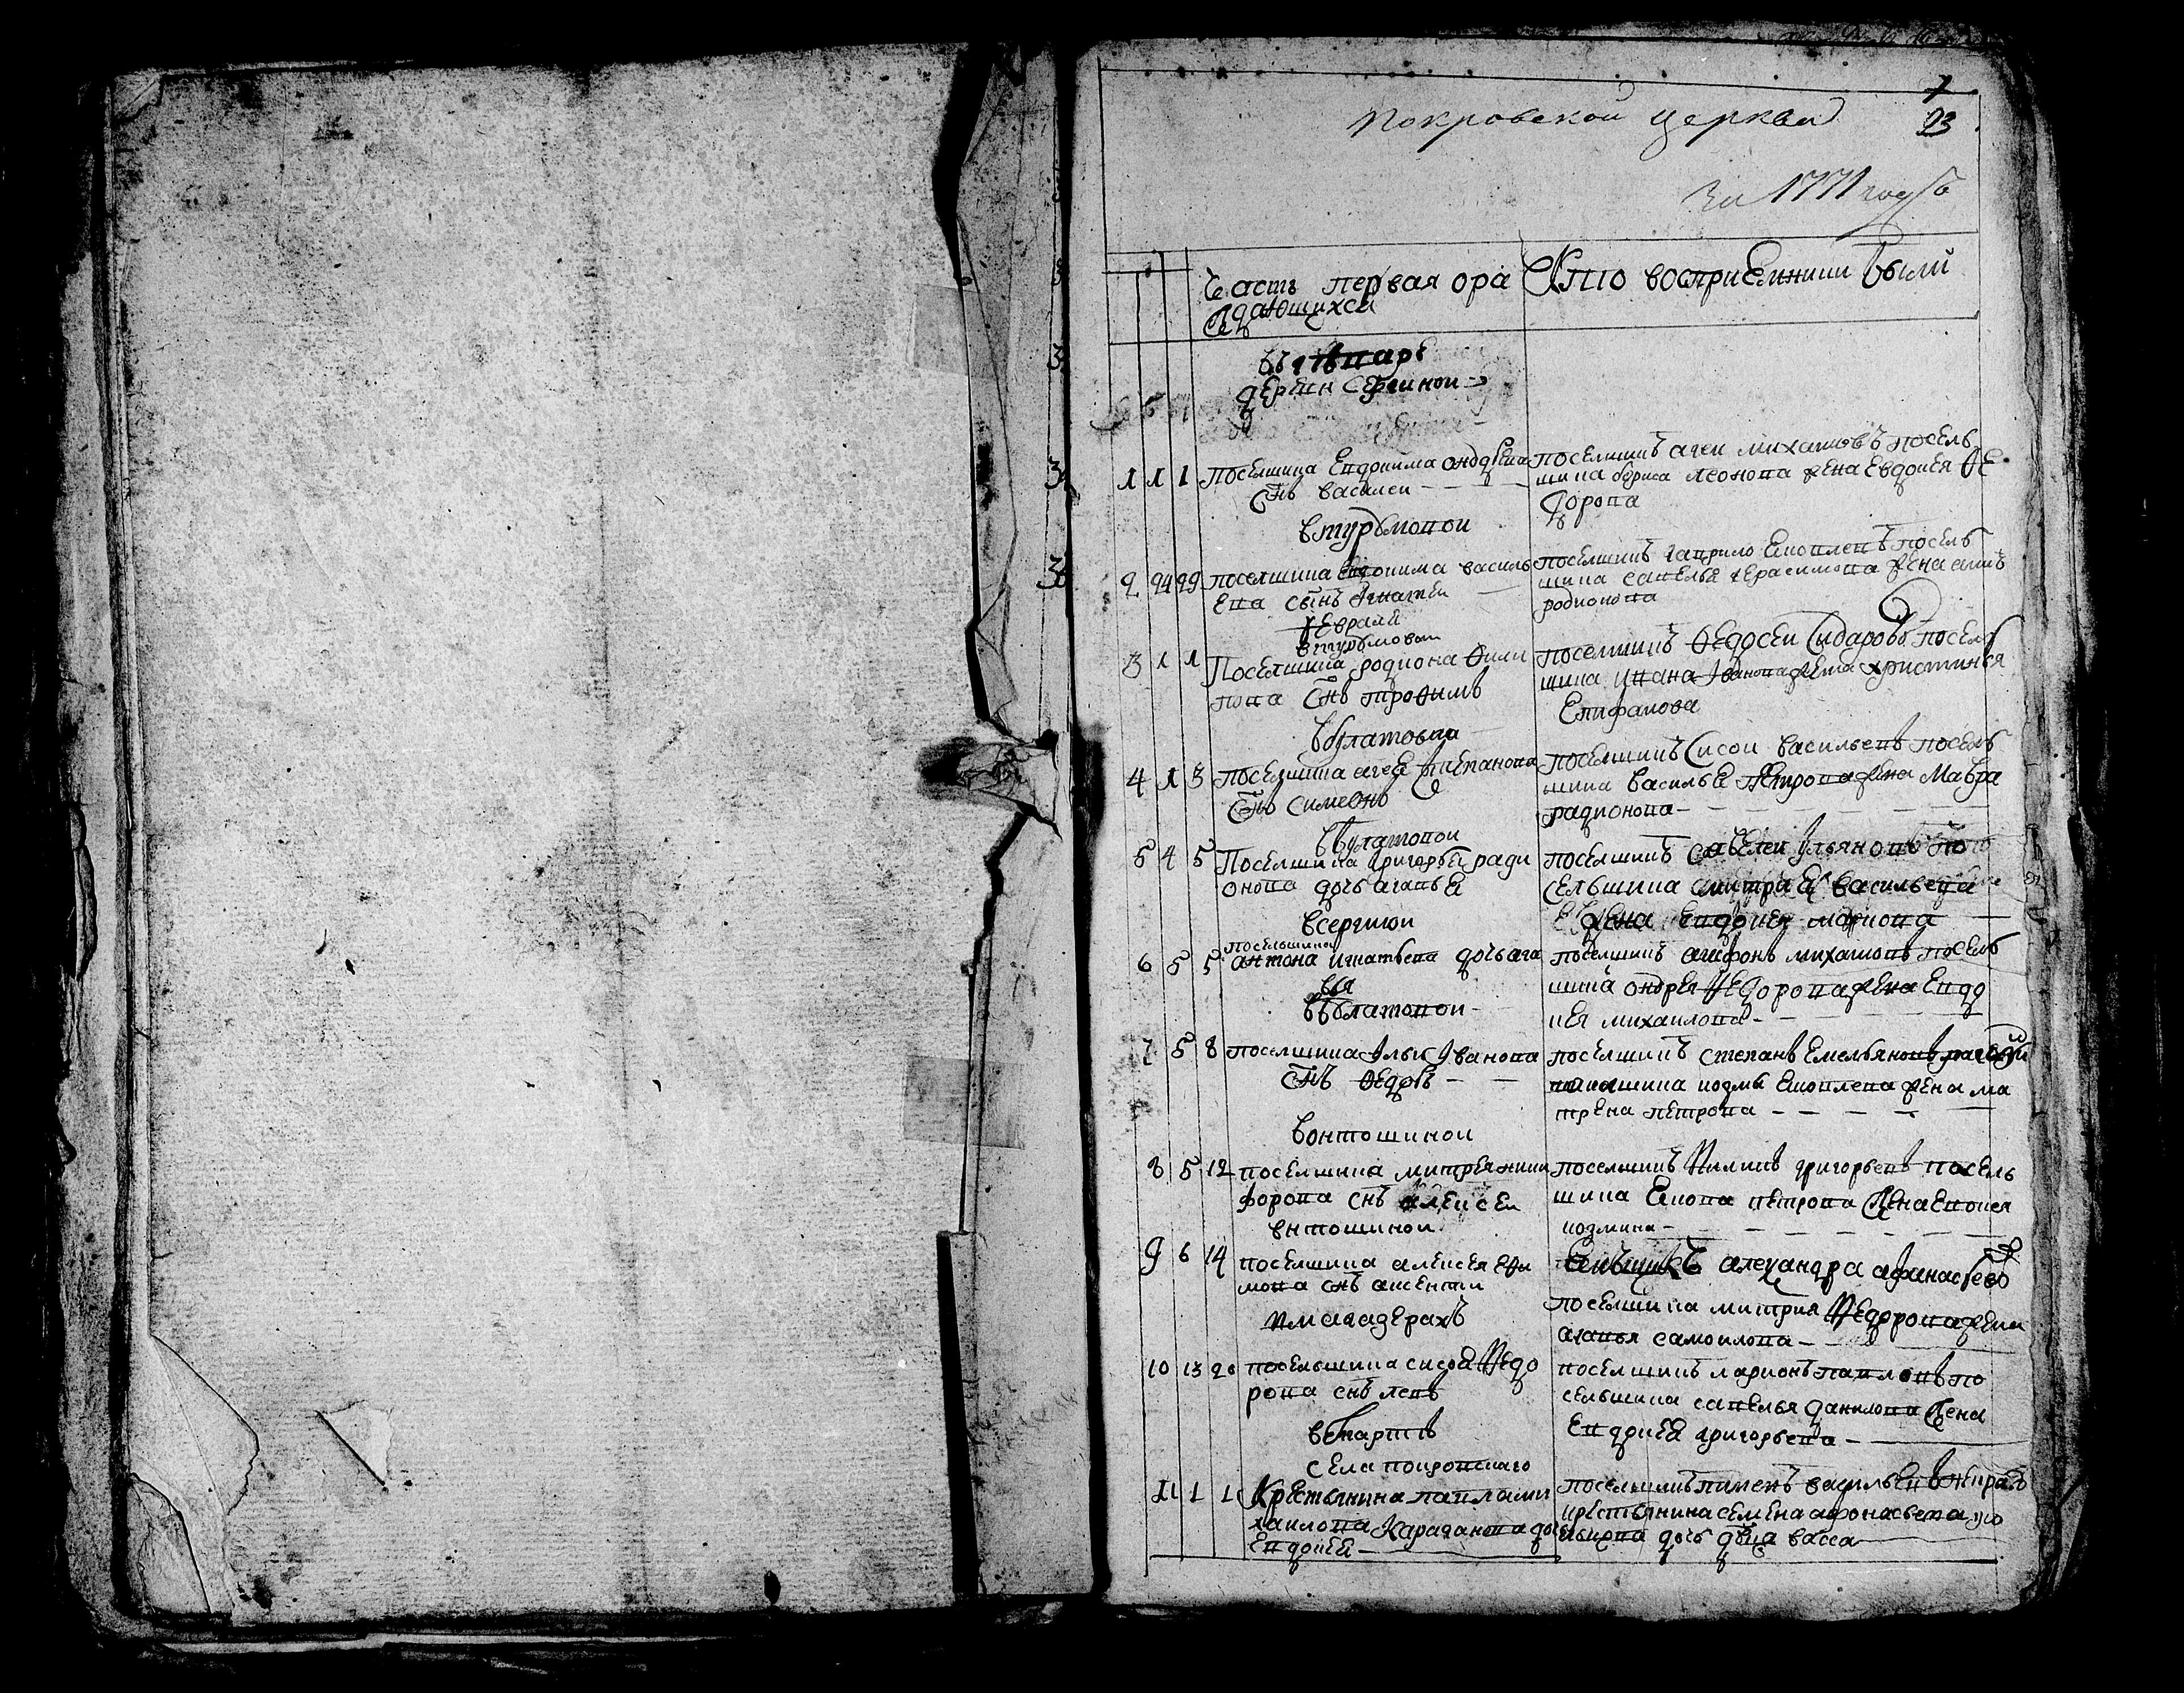 Покровской церкви
93
за 1771 годъ
Часть первая ора
ждающихся
Кто восприемники были
въ генваре
дерѣвни Сергиной
1 1 1 поселшика Евдокима ондреева
снъ василеи
поселшикъ агеи михаиловъ посель
шика бориса леонова жена евдокея Ѳе
дорова
в турумовои
2 24 29 поселшика евдокима василь
ева сынъ Игнатеи
поселшикъ гаврило Ековлевъ посель
шика савелья герасимова жена анна
родионова
февраля
в турумовои
3 1 1 Поселшика родиона Ѳили
пова снъ троѳимъ
поселшикъ Ѳедосеи Сидаровъ посель
шика ивана Иванова жена христинья
Епифанова
в булатовои
4 1 3 поселшика агея степанова
снъ симеонъ
поселшикъ Сисои васильевъ посель
шика василья Петрова жена Мавра
радионова
в булатовои
5 4 5 Поселшика григорья ради
онова дочь агапья
поселшикъ савелеи Ульяновъ по
сельшика митрия васильева
жена евдокея маркова
в сергинои
6 5 5 поселшика
антона игнатьева дочь ага
вья
поселшикъ агафонъ михаиловъ посель
шика ондрея Ѳедорова жена Евдо
кея михаилова
в булатовои
7 5 8 поселшика Ильи Иванова
снъ Ѳедоръ
поселшикъ степанъ Емельяновъ
шика козмы Ековлева жена ма
трена петрова
в онтошинои
8 5 12 поселшика митрея ники
форова снъ алексеи
поселшикъ Филипъ григорьевъ посель
шика Екова петрова жена Евдокея
козмина
в нтошинои
9 6 14 поселшика алексея еки
мова снъ аксентеи
александра афанасьев
поселшика митрия Ѳедорова жена
агапья самоилова
в магадерахъ
10 13 20 посельшика сисоя Ѳедо
рова снъ левъ
поселшикъ ларионъ павловъ по
сельшика савелья данилова жена
Евдокея григорьева
в мартѣ
села покровскаго
11 1 1 Крестьянина павла ми
хаилова Караганова дочь
Евдокея
поселшикъ пименъ васильевъ
крестьянина семена афонасьева
дочь дѣвица васса